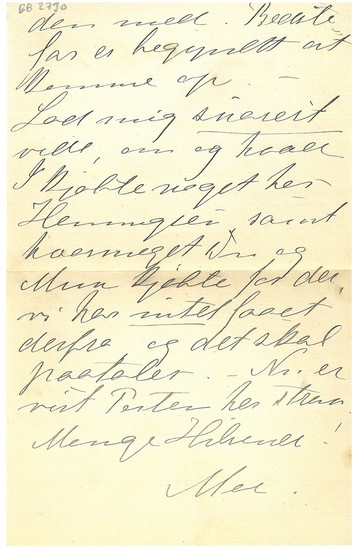 BB 2730
den med. Bedste
far er begyndt at
komme op. —
Lad mig snarest
vide, om og hvad
I kjøbte noget hos
Henningsen samt
hvormeget Du og
Mua kjøbte for der,
vi har intet faaet
derfra og det skal
paatales. — Nu er
vist Posten her strax.
Mange Hilsener!